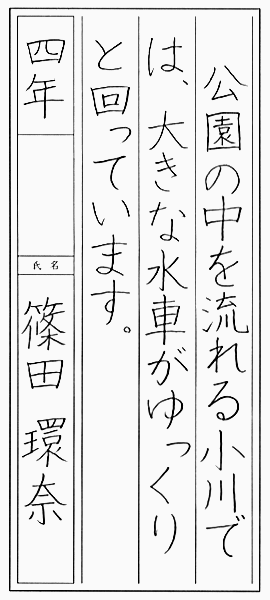 公園の中を流れる小川で
は、大きな水車がゆっくり
と回っています。
四年
氏名
篠田環奈